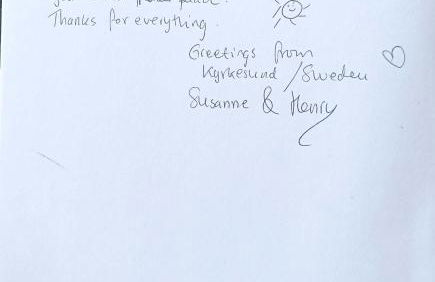 Thanks for everything.
Greetings from
Kyrkesund / Sweden
Susanne & Henry